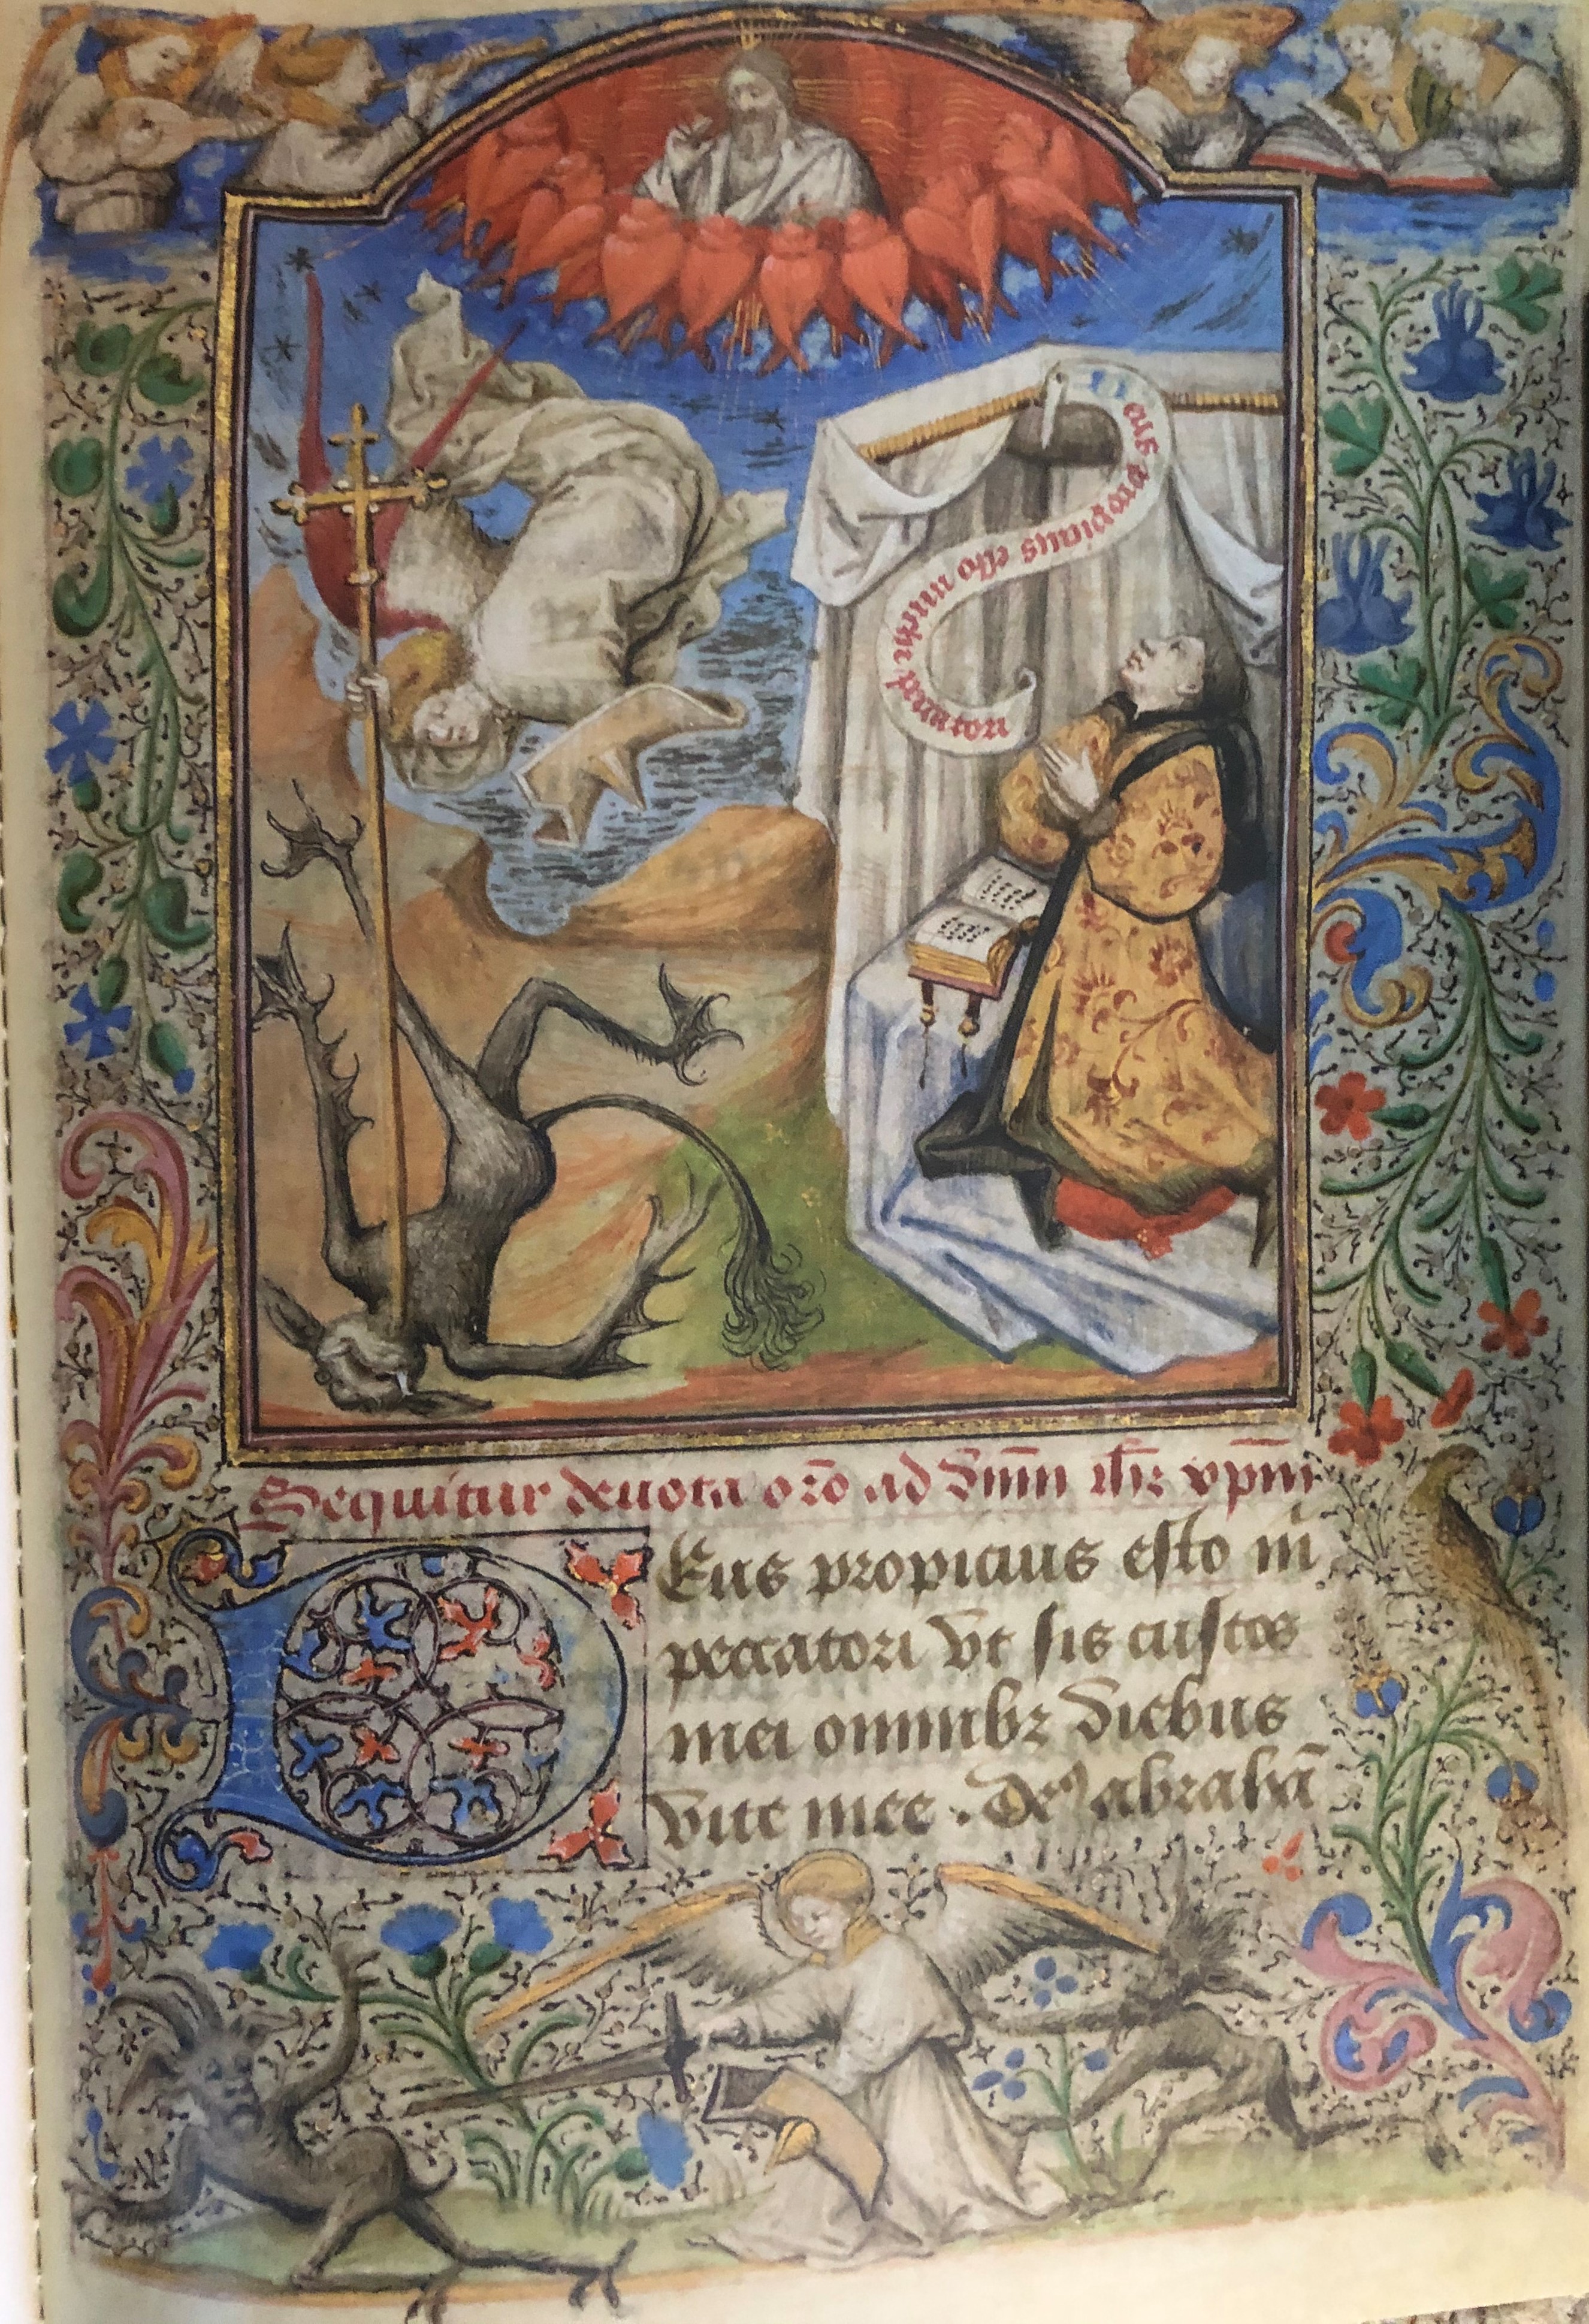 deus propicius esto michi peccatori
Sequitur deuota orõ ad dñm ihm xpm
DEus propicius esto m̃
peccatori vt sis custos
mei omnibꝫ diebus
vite mee . deꝰ abrahã